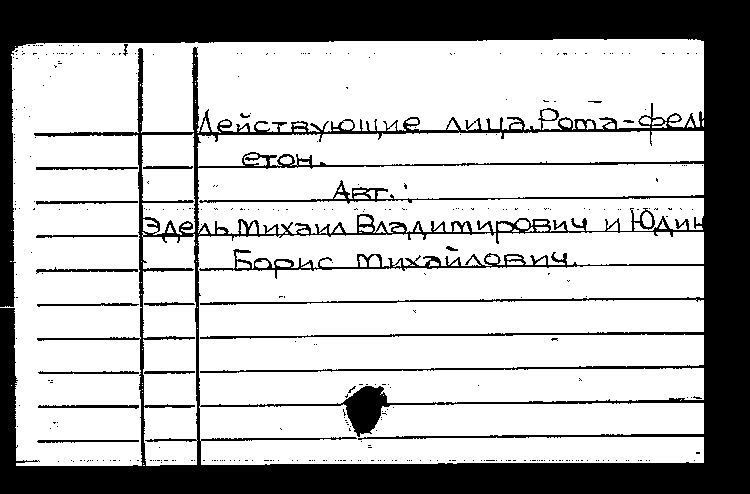 Действующие лица. Рота-фель
етон.
Авт.:
Эдель, Михаил Владимирович и Юдин
Борис Михайлович.